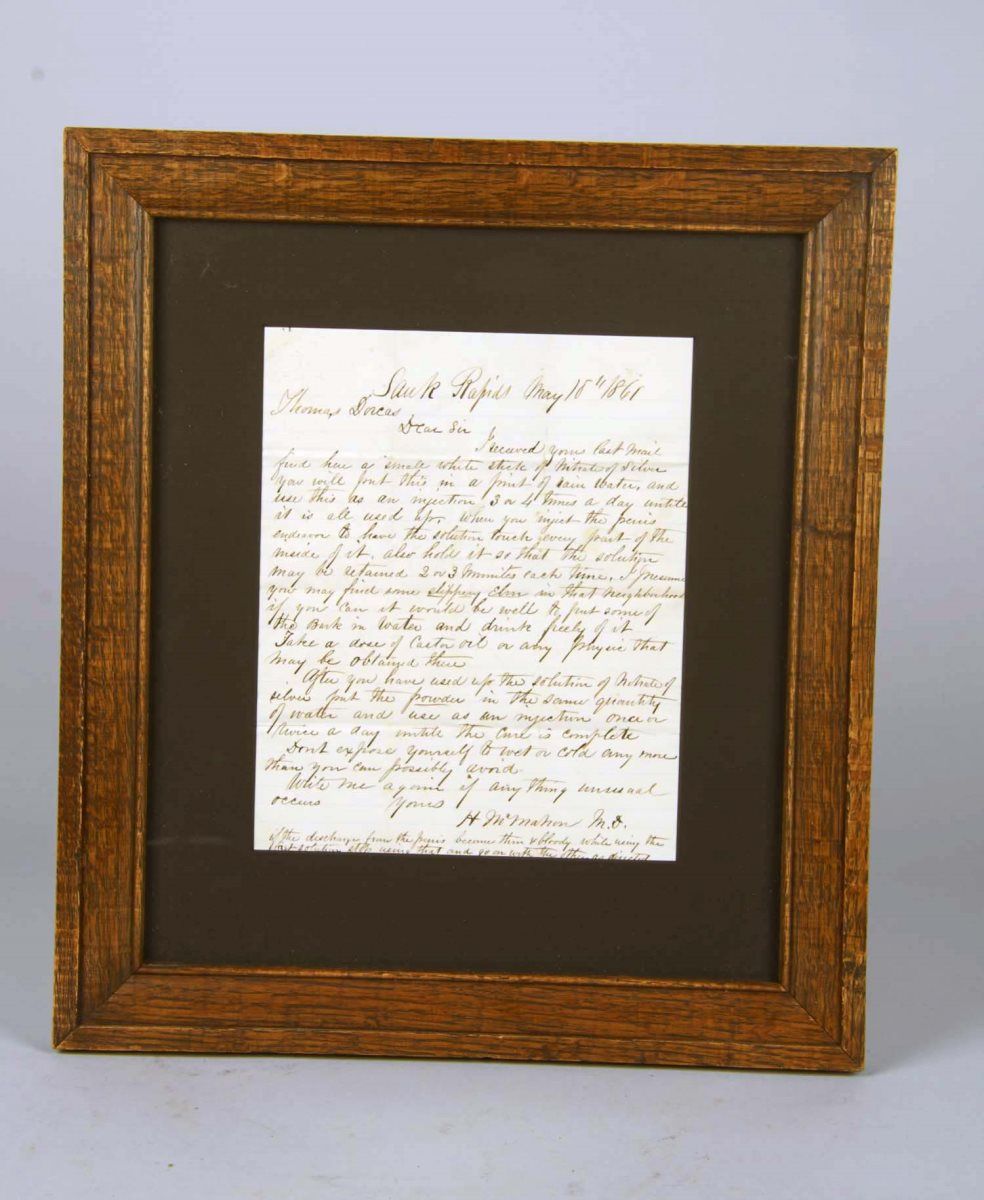 Sauk Rapids May 10th 1861
Thomas Dorcas
Dear Sir
I received yours last mail
find here a small white stick of Nitrate of Silver
you will put this in a pint of rain water, and
use this as an injection 3 or 4 times a day untill
it is all used up. When you inject the penis
endeavor to have the solution touch every part of the
inside of it. also hold it so that the solution
may be retained 2 or 3 minutes each time. I presume
you may find some slippery Elm in that neighborhood
if you can it would be well to put some of
the Bark in water and drink freely of it
Take a dose of Castor oil or any Physic that
may be obtained there
After you have used up the solution of Nitrate of
silver put the powder in the same quantity
of water and use as an injection once or
twice a day untill the cure is complete
Dont expose yourself to wet or cold any more
than you can possibly avoid
Write me again if any thing unusual
occurs Yours
H McMahon M.D.
if the discharge from the penis become thin & bloody while using the
first solution stop using that and go on with the other as directed